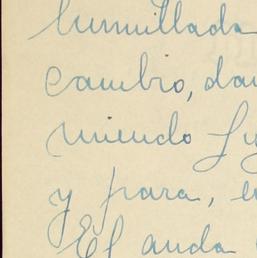 humillada
cambio, da
miendo
y para, e
El anda